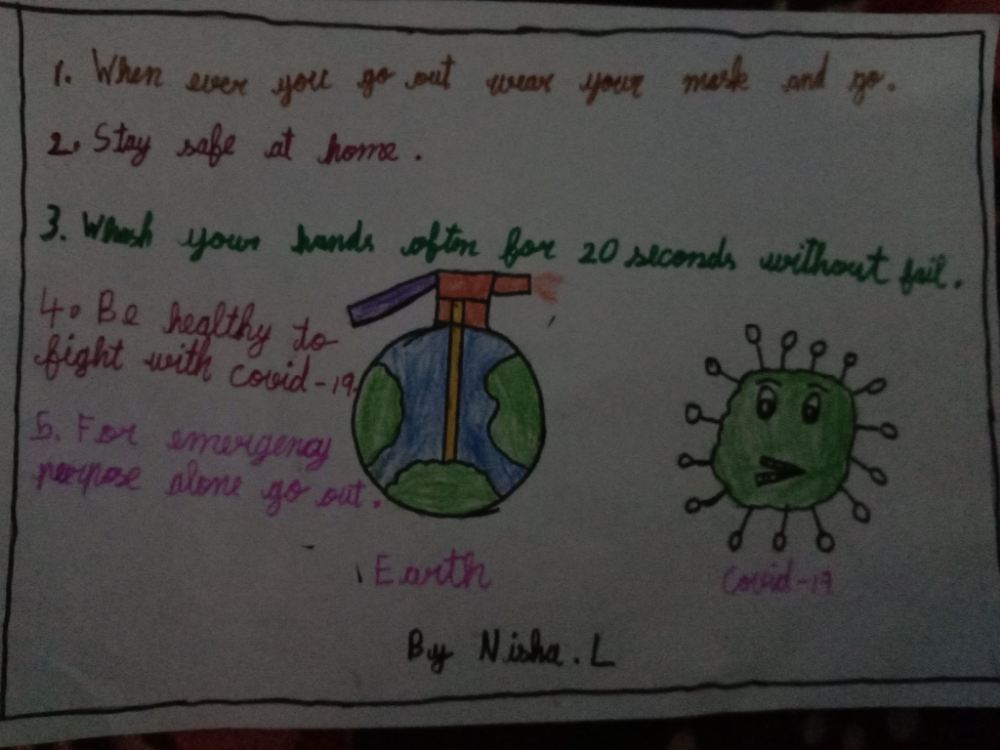 1. When ever you go out wear your mask and go.
2. Stay safe at home.
3. Whash your hands often for 20 seconds without fail.
4. Be healthy to
fight with covid-19.
5. For emergency
porpose alone go out.
Earth
Covid-19
By Nisha. L